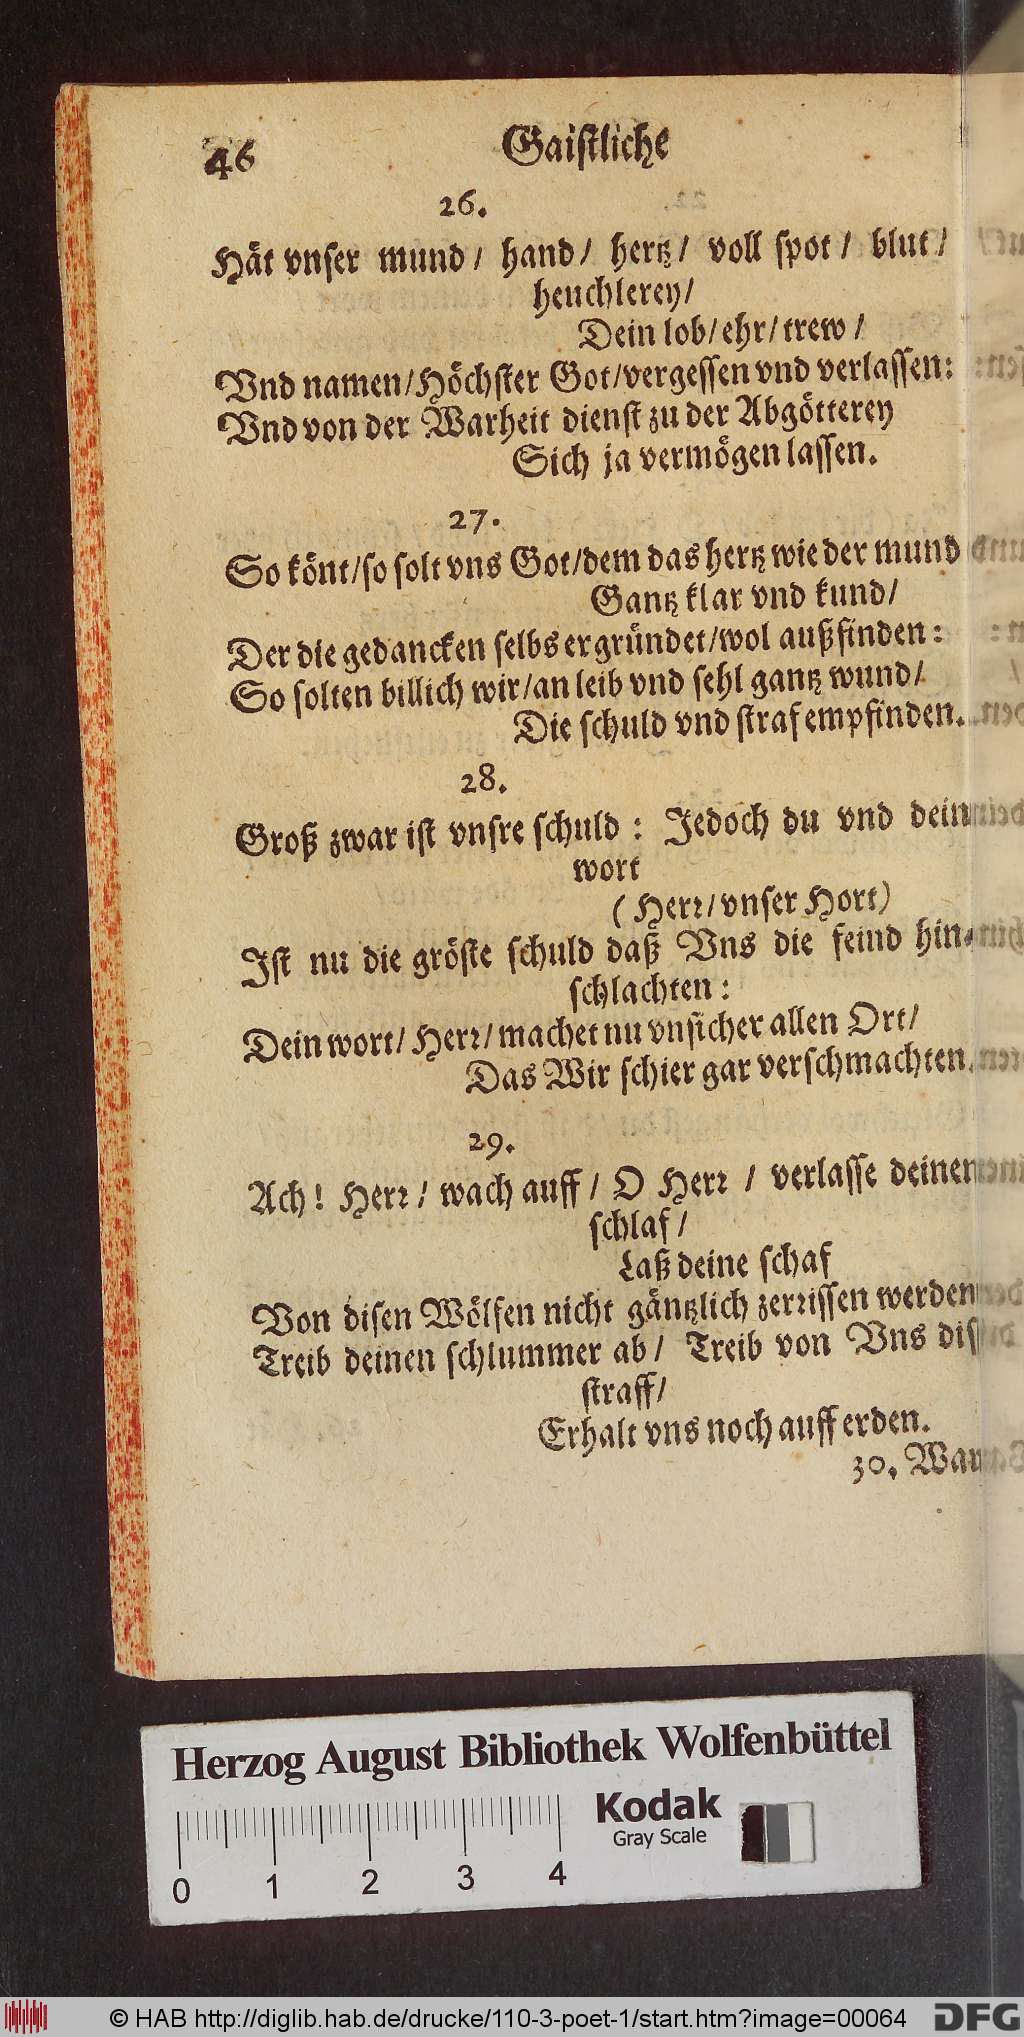 46 Gaistliche
26.
Hät vnser mund / hand / hertz / voll spot / blut /
heuchlerey /
Dein lob / ehr / trew /
Vnd namen / Höchster Got / vergessen vnd verlassen:
Vnd von der Warheit dienst zu der Abgötterey
Sich ja vermögen lassen.
27.
So könt / so solt vns Got / dem das hertz wie der mund
Gantz klar vnd kund /
Der die gedancken selbs ergründet / wol außfinden:
So solten billich wir / an leib vnd sehl gantz wund /
Die schuld vnd straf empfinden.
28.
Groß zwar ist vnsre schuld : Jedoch du vnd dein
wort
( Herr / vnser Hort)
Ist nu die gröste schuld daß Vns die feind hin-
schlachten :
Dein wort / Herr / machet nu vnsicher allen Ort /
Das Wir schier gar verschmachten.
29.
Ach ! Herr / wach auff / O Herr / verlasse deinen
schlaf /
Laß deine schaf
Von disen Wölfen nicht gäntzlich zerrissen werden
Treib deinen schlummer ab / Treib von Vns
straff /
Erhalt vns noch auff erden.
30.
Herzog August Bibliothek Wolfenbüttel
Kodak
Gray Scale
0 1 2 3 4
© HAB http://diglib.hab.de/drucke/110-3-poet-1/start.htm?image=00064
DFG